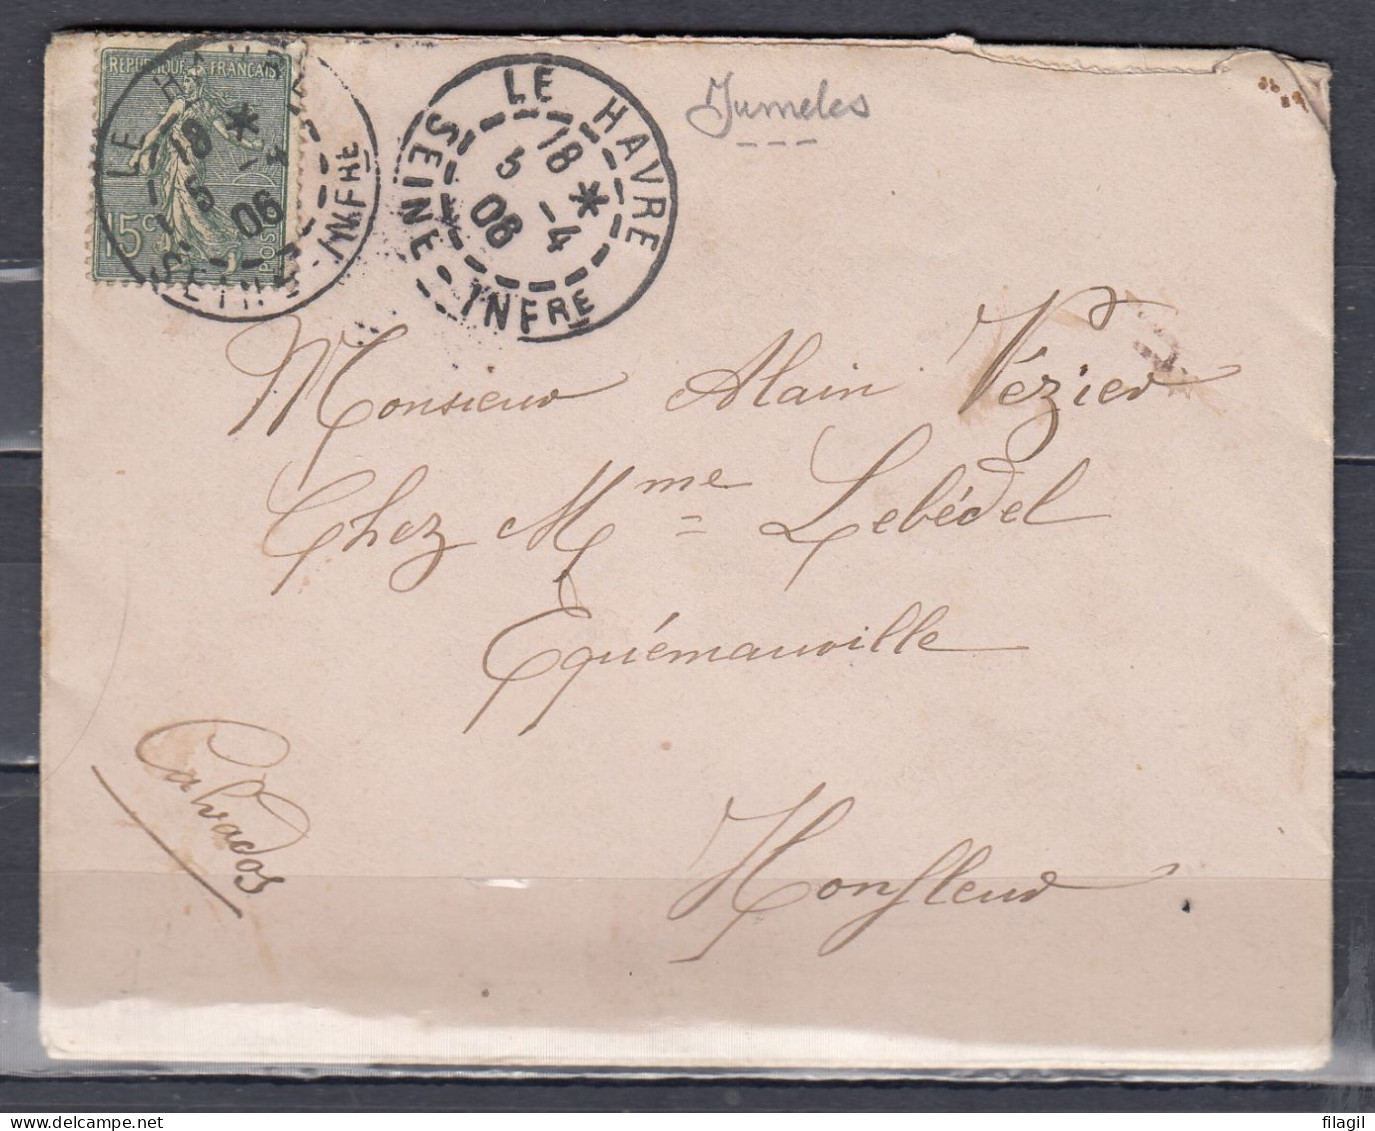 REPUBLIQUE FRANÇAISE
15c
POSTES
LE HAVRE
18 *
5 -4
06
SEINE-INFRE
LE HAVRE
18 *
5 -4
06
SEINE-INFRE
Jumeles
Monsieur Alain Vézier
Chez Mme Lebédel
Equémauville
Calvados
Honfleur
filagil